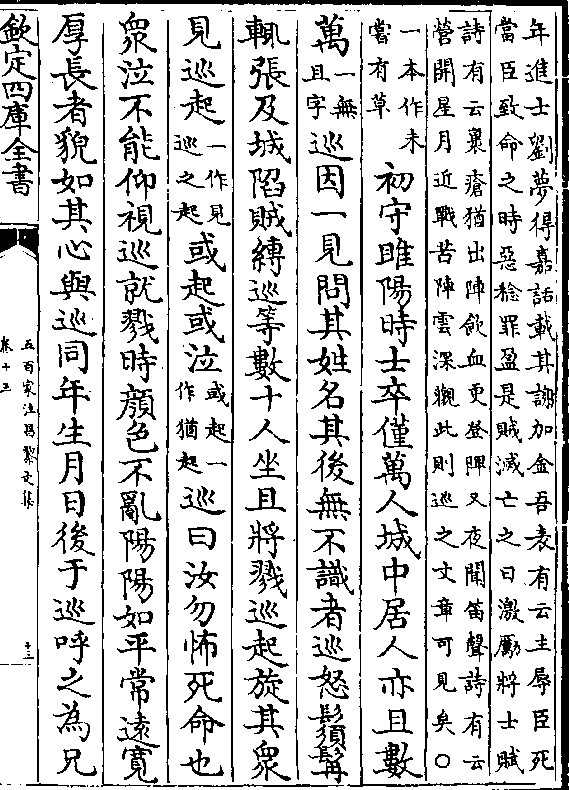 年進士劉夢得嘉話載其謝加金吾表有云主辱臣死
當臣致命之時惡稔罪盈是賊滅亡之日激勵將士賦
詩有云褁瘡猶出陣飲血更登陴又夜聞笛聲詩有云
營開星月近戰苦陣雲深觀此則巡之文章可見矣○
一本作未
嘗有草
初守睢陽時士卒僅萬人城中居人亦且數
萬
一無
且字
巡因一見問其姓名其後無不識者巡怒鬚髯
輒張及城陷賊縛巡等數十人坐且將戮巡起旋其衆
見巡起
一作見
巡之起
或起或泣
或起一
作猶起
巡曰汝勿怖死命也
衆泣不能仰視巡就戮時顔色不亂陽陽如平常遠寛
厚長者貌如其心與巡同年生月日後于巡呼之為兄
欽定四庫全書
五百家注昌黎文集
卷十三
十三